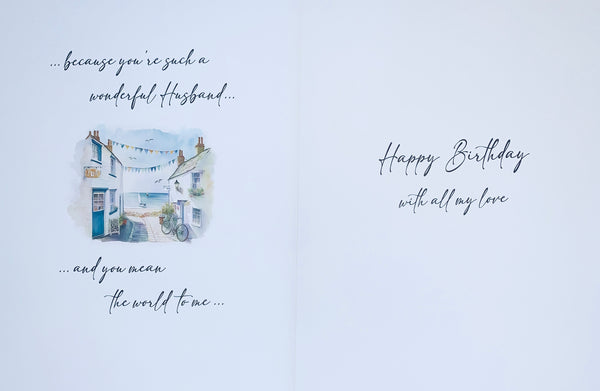 ...because you're such a
wonderful Husband...
...and you mean
the world to me...
Happy Birthday
with all my love